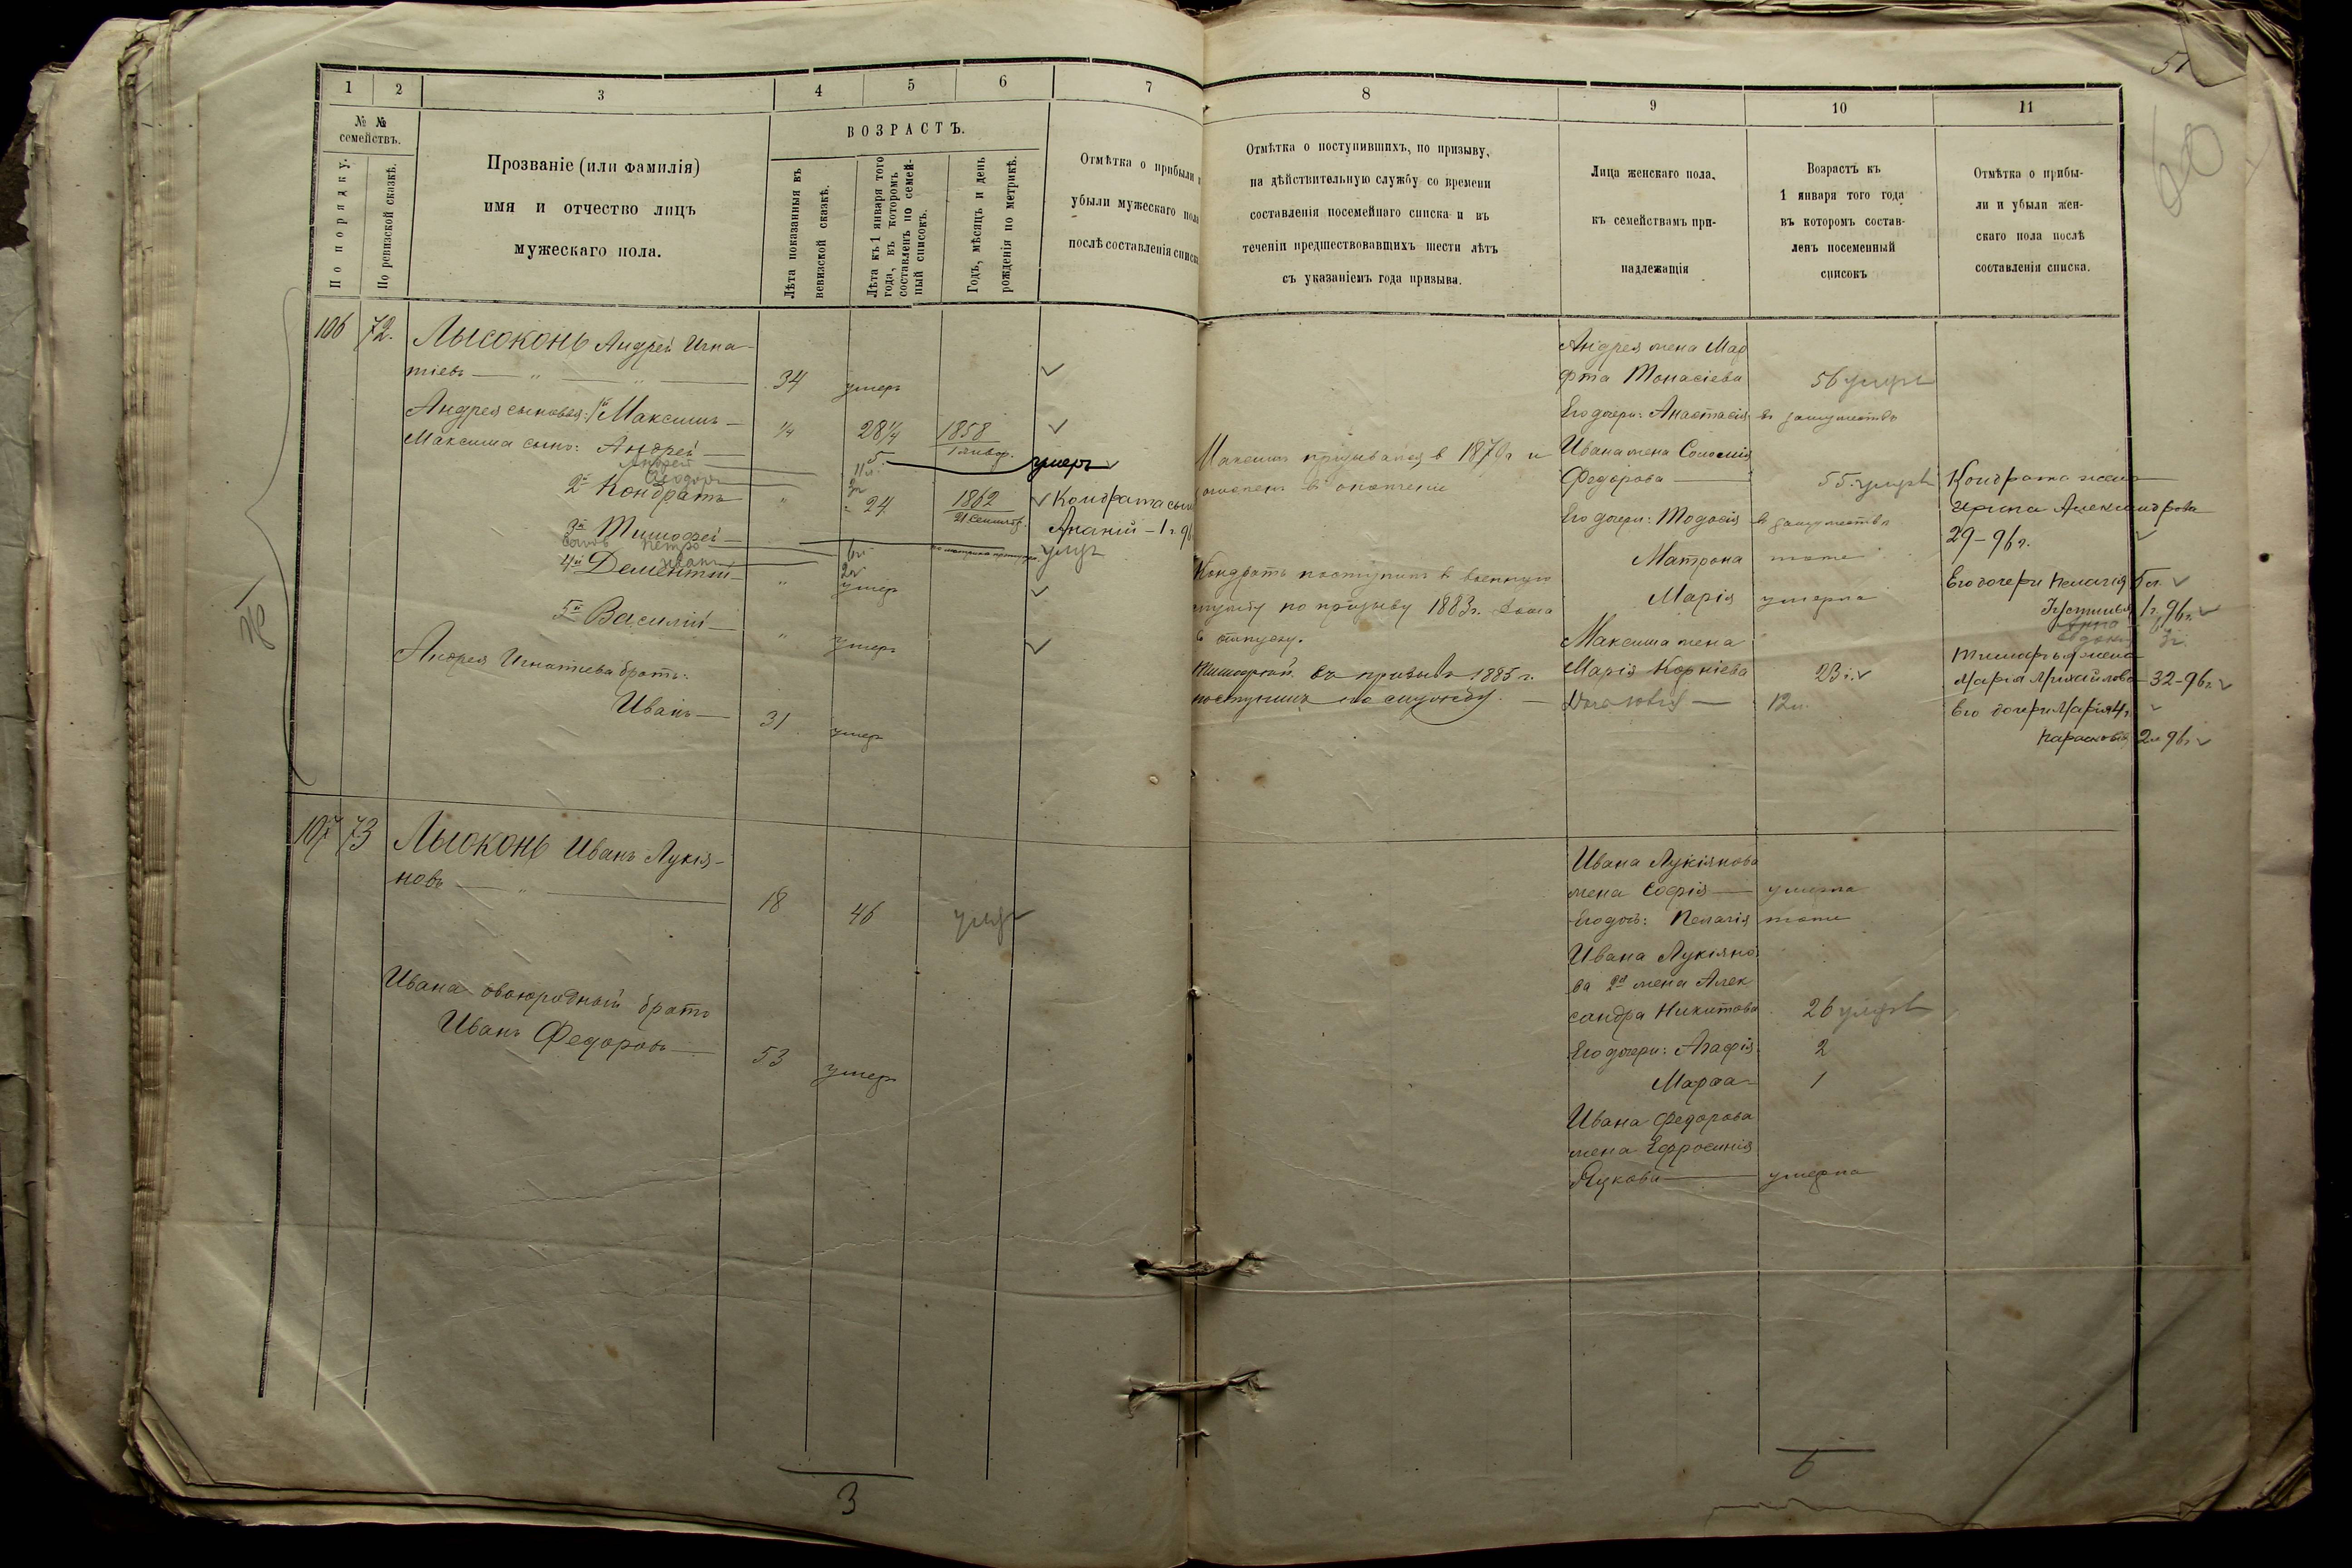 51
60
1 2 3 4 5 6 7
№ №
семействъ.
По порядку.
По ревизской сказкѣ.
Прозваніе (или фамилія)
имя и отчество лицъ
мужескаго пола.
ВОЗРАСТЪ.
Лѣта показанныя въ
ревизской сказкѣ.
Лѣта къ 1 января того
года, въ которомъ
составленъ посемей-
ный списокъ.
Годъ, мѣсяцъ и день
рожденія по метрикѣ.
Отмѣтка о прибыли и
убыли мужескаго пола
послѣ составленія списка
106 72. Лысоконь Андрей Игна-
тіевъ — „ — „ — 34 умеръ
Андрея сыновья: 1й Максимъ — ¼ 28¼ 1858
1 январ.
Максима сынъ: Андрей — 5 умеръ
Андрей 11 л.
Ѳедоръ
2й Кондратъ „ 24 1862
21 Сентябр.
Кондрата сын
Ананій — 1 г. 96
3й Тимофей — умеръ
Петро 6 л.
Иванъ 2 г.
4й Дементій — „ умеръ
5й Василій — „ умеръ
Андрея Игнатіева братъ:
Иванъ — 31 умеръ
107 73 Лысоконь Иванъ Лукія-
новъ — „ — 18 46 умеръ
Ивана двоюродный братъ
Иванъ Федоровъ — 53 умеръ
3
8 9 10 11
Отмѣтка о поступившихъ, по призыву,
на дѣйствительную службу со времени
составленія посемейнаго списка и въ
теченіи предшествовавшихъ шести лѣтъ
съ указаніемъ года призыва.
Лица женскаго пола,
къ семействамъ при-
надлежащія
Возрастъ къ
1 января того года
въ которомъ состав-
ленъ посеменный
списокъ
Отмѣтка о прибы-
ли и убыли жен-
скаго пола послѣ
составленія списка.
Максимъ призывался в 1879 г и
зачисленъ в ополченіе
Кондратъ поступилъ в военную
службу по призыву 1883 г.
в отпуску.
Тимофей въ призывъ 1885 г.
поступилъ на службу. —
Андрея жена Мар
фта Танасіева 56 умерла
Его дочери: Анастасія в замужествѣ
Ивана жена Соломія
Федорова — 55. умерла
Его дочери: Тодосія в замужествѣ
Матрона тоже
Марія умерла
Максима жена
Марія Корніева 23 г.
12 л.
Кондрата жена
Ирина Александрова
29 – 96 г.
Его дочери Пелагія 5 л.
Устинья 1 г. 96 г.
Анна
3 г.
Тимофея жена
Марія Михайлова — 32 – 96 г.
Его дочери Марія 4 г.
Парасковія 2 г 96 г.
Ивана Лукіянова
жена Софія — умерла
Его дочь: Пелагія тоже
Ивана Лукіяно
ва 2я жена Алек
сандра Никитова 26 умерла
Его дочери: Агафія 2
Марѳа 1
Ивана Федорова
жена Ефросинія
Лукова — умерла
6